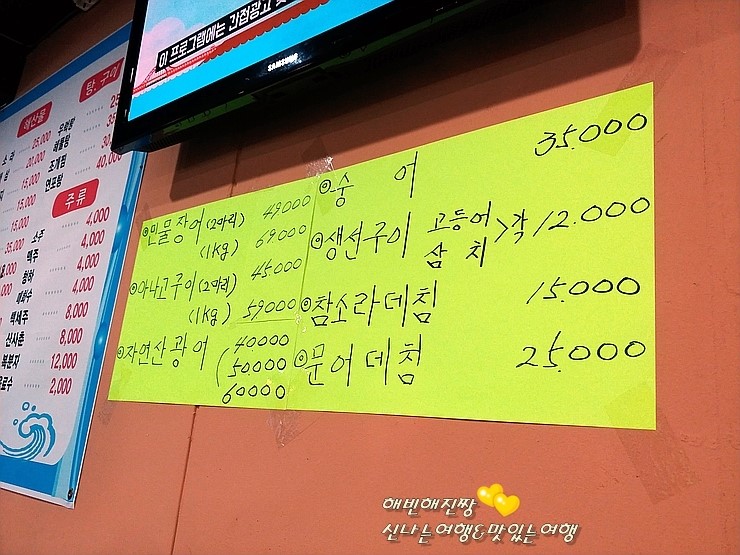 이 프로그램에는 간접광고
SAMSUNG
해산물
탕.구이
25,000
20,000
35,000
우럭탕
해물탕
조개찜
연포탕
30,
40,0
주류
소주 4,000
맥주 4,000
청하 4,000
매화수
백세주 8,000
산사춘 8,000
복분자 12,000
음료수 2,000
◎민물장어(2마리) 49000
(1kg) 69000
◎아나고구이(2마리) 45,000
(1kg) 59000
◎자연산광어 (40.000
50,000
60000
◎숭어 35.000
◎생선구이 고등어 삼치 >각 12.000
◎참소라데침 15.000
◎문어데침 25.000
해빈해진짱
신나는여행&맛있는여행